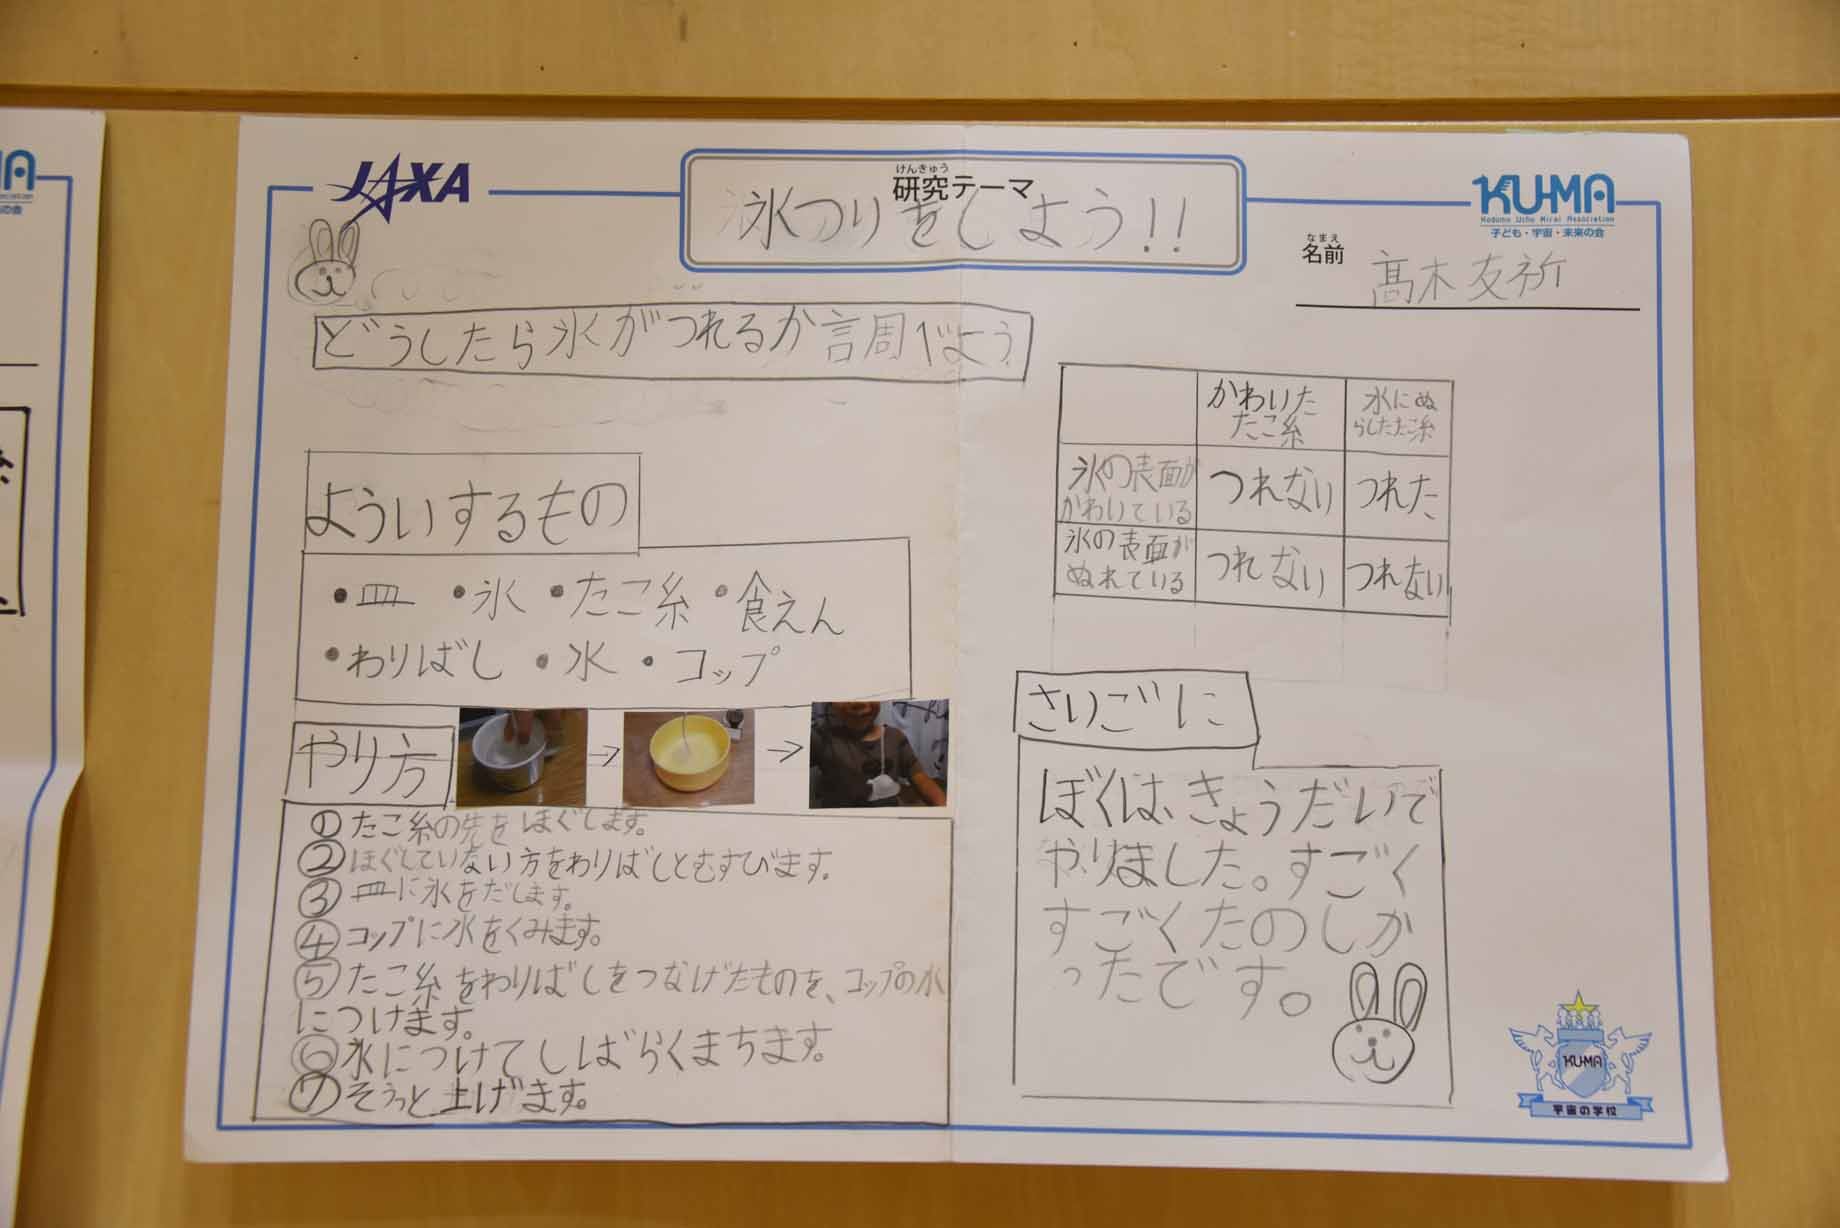 JAXA
けんきゅう
研究テーマ
氷つりをしよう!!
KU-MA
Kodomo Uchu Mirai Association
子ども・宇宙・未来の会
なまえ
名前
髙木友祈
どうしたら氷がつれるか調べよう
よういするもの
•皿 •氷 •たこ糸 •食えん
•わりばし •水 •コップ
やり方
→ →
①たこ糸の先をほぐします。
②ほぐしていない方をわりばしとむすびます。
③皿に氷をだします。
④コップに水をくみます。
⑤たこ糸をわりばしをつなげたものを、コップの水
につけます。
⑥氷につけてしばらくまちます。
⑦そうっと上げます。
かわいた
たこ糸
水にぬ
らしたたこ糸
氷の表面が
かわいている
つれない
つれた
氷の表面が
ぬれている
つれない
つれない
さいごに
ぼくは、きょうだいで
やりました。すごく
すごくたのしか
ったです。
KU-MA
宇宙の学校